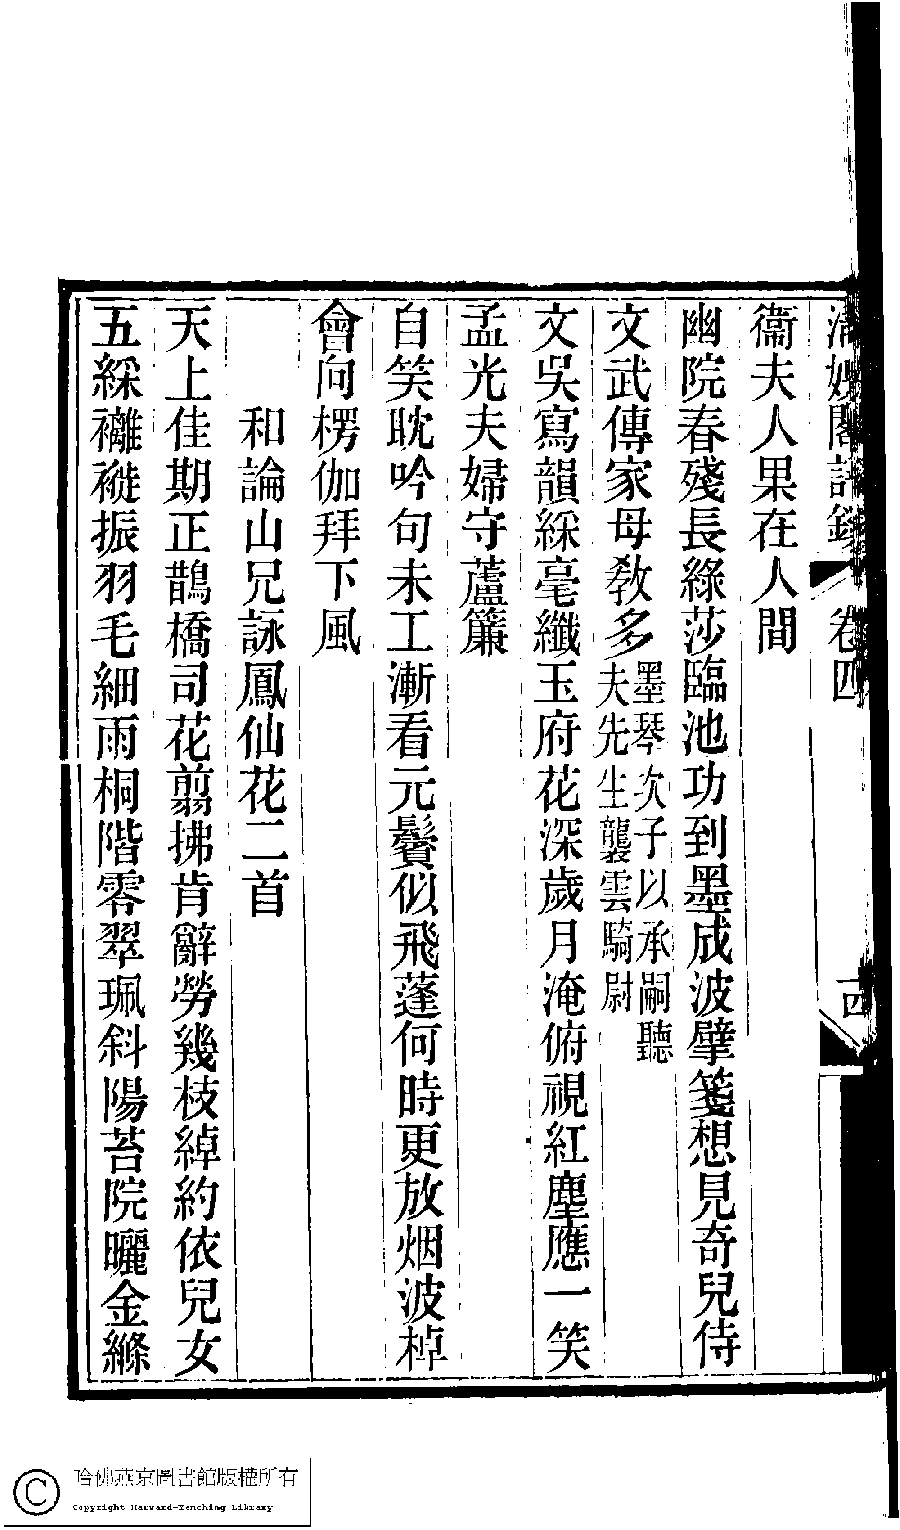 清娛閣詩鈔 卷四
衞夫人果在人間
幽院春殘長綠莎臨池功到墨成波擘箋想見奇兒侍
文武傳家母敎多墨琴次子以承嗣聽
夫先生襲雲騎尉
文吳寫韻綵毫纖玉府花深歲月淹俯視紅塵應一笑
孟光夫婦守蘆簾
自笑耽吟句未工漸看元鬢似飛蓬何時更放烟波棹
會向楞伽拜下風
和論山兄詠鳳仙花二首
天上佳期正鵲橋司花翦拂肯辭勞幾枝綽約依兒女
五綵襳褷振羽毛細雨桐階零翠珮斜陽苔院曬金縧
哈佛燕京圖書館版權所有
Copyright Harvard-Yenching Library